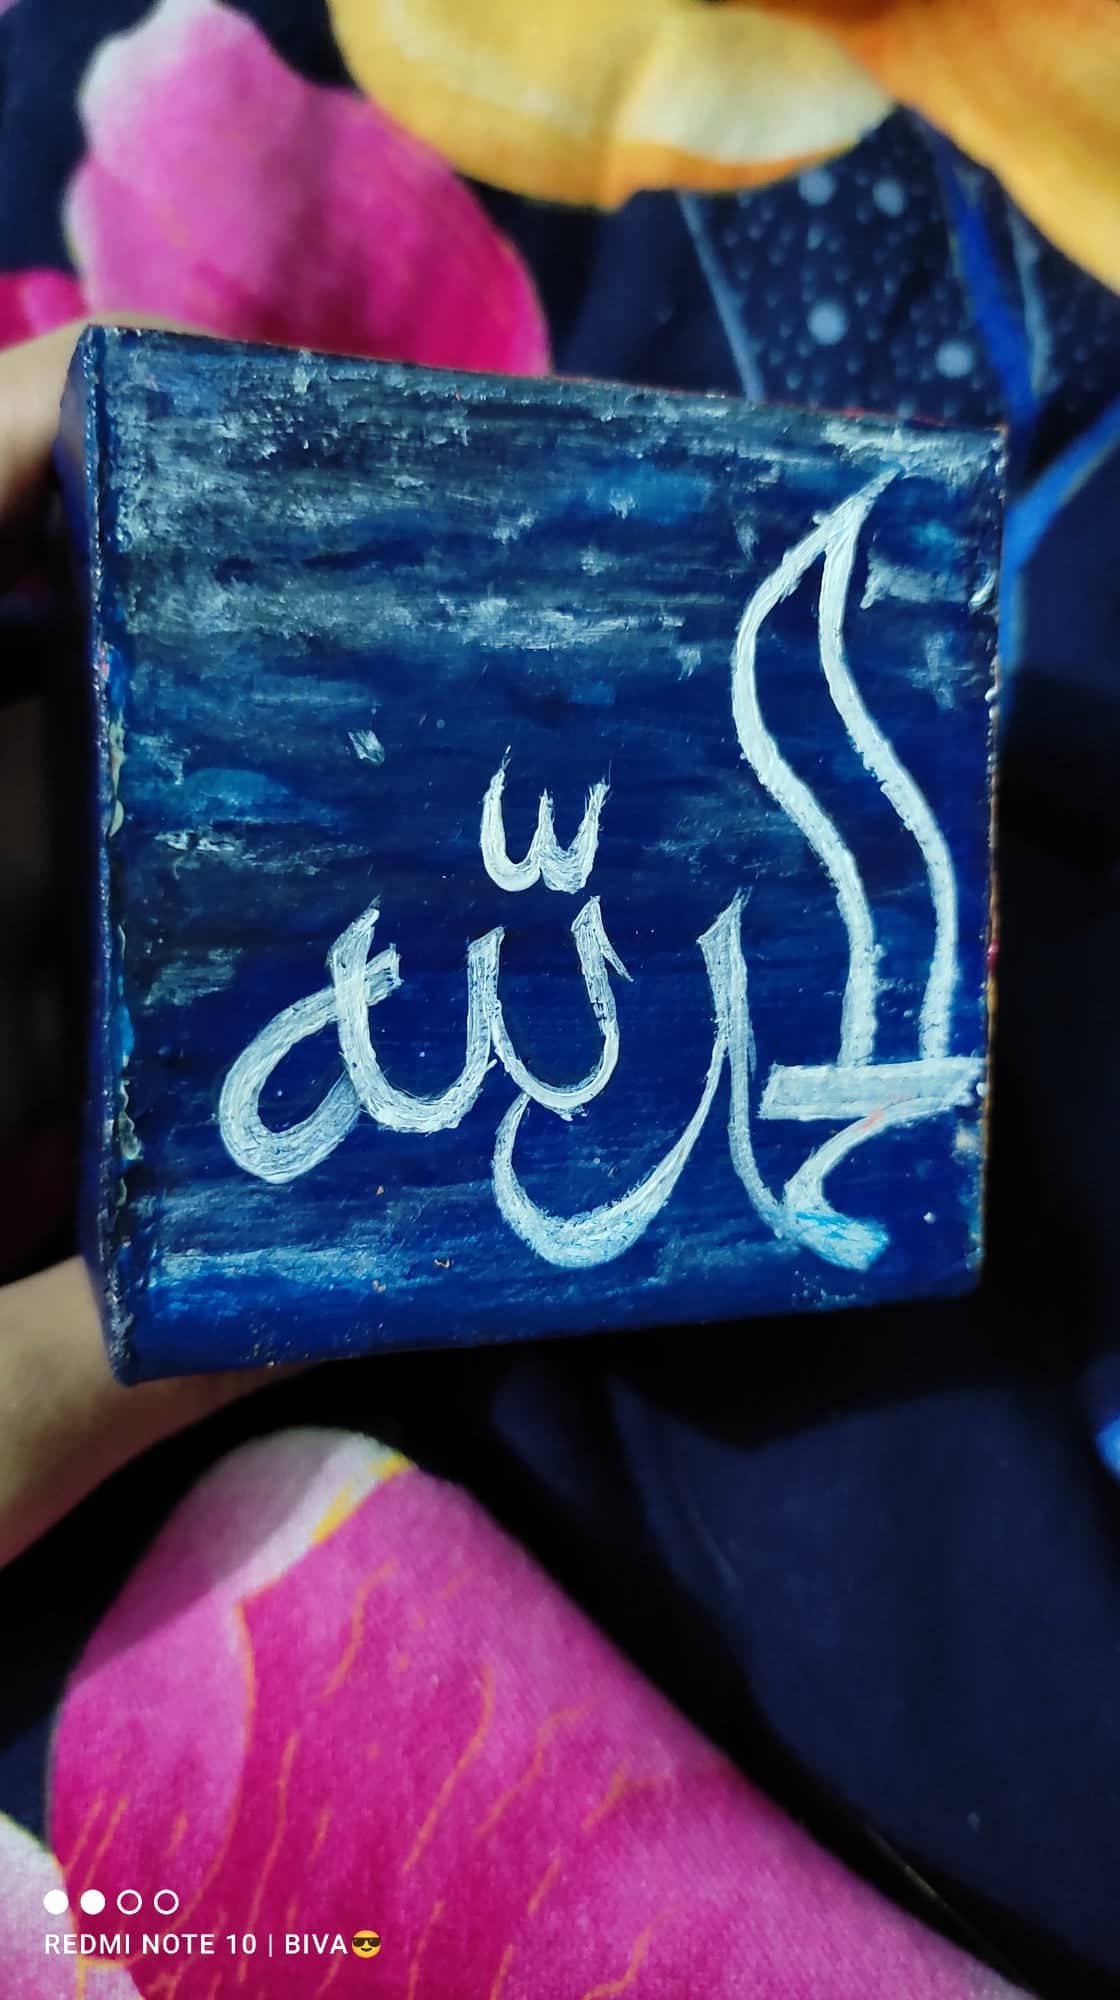 الحمد لله
REDMI NOTE 10 | BIVA😎